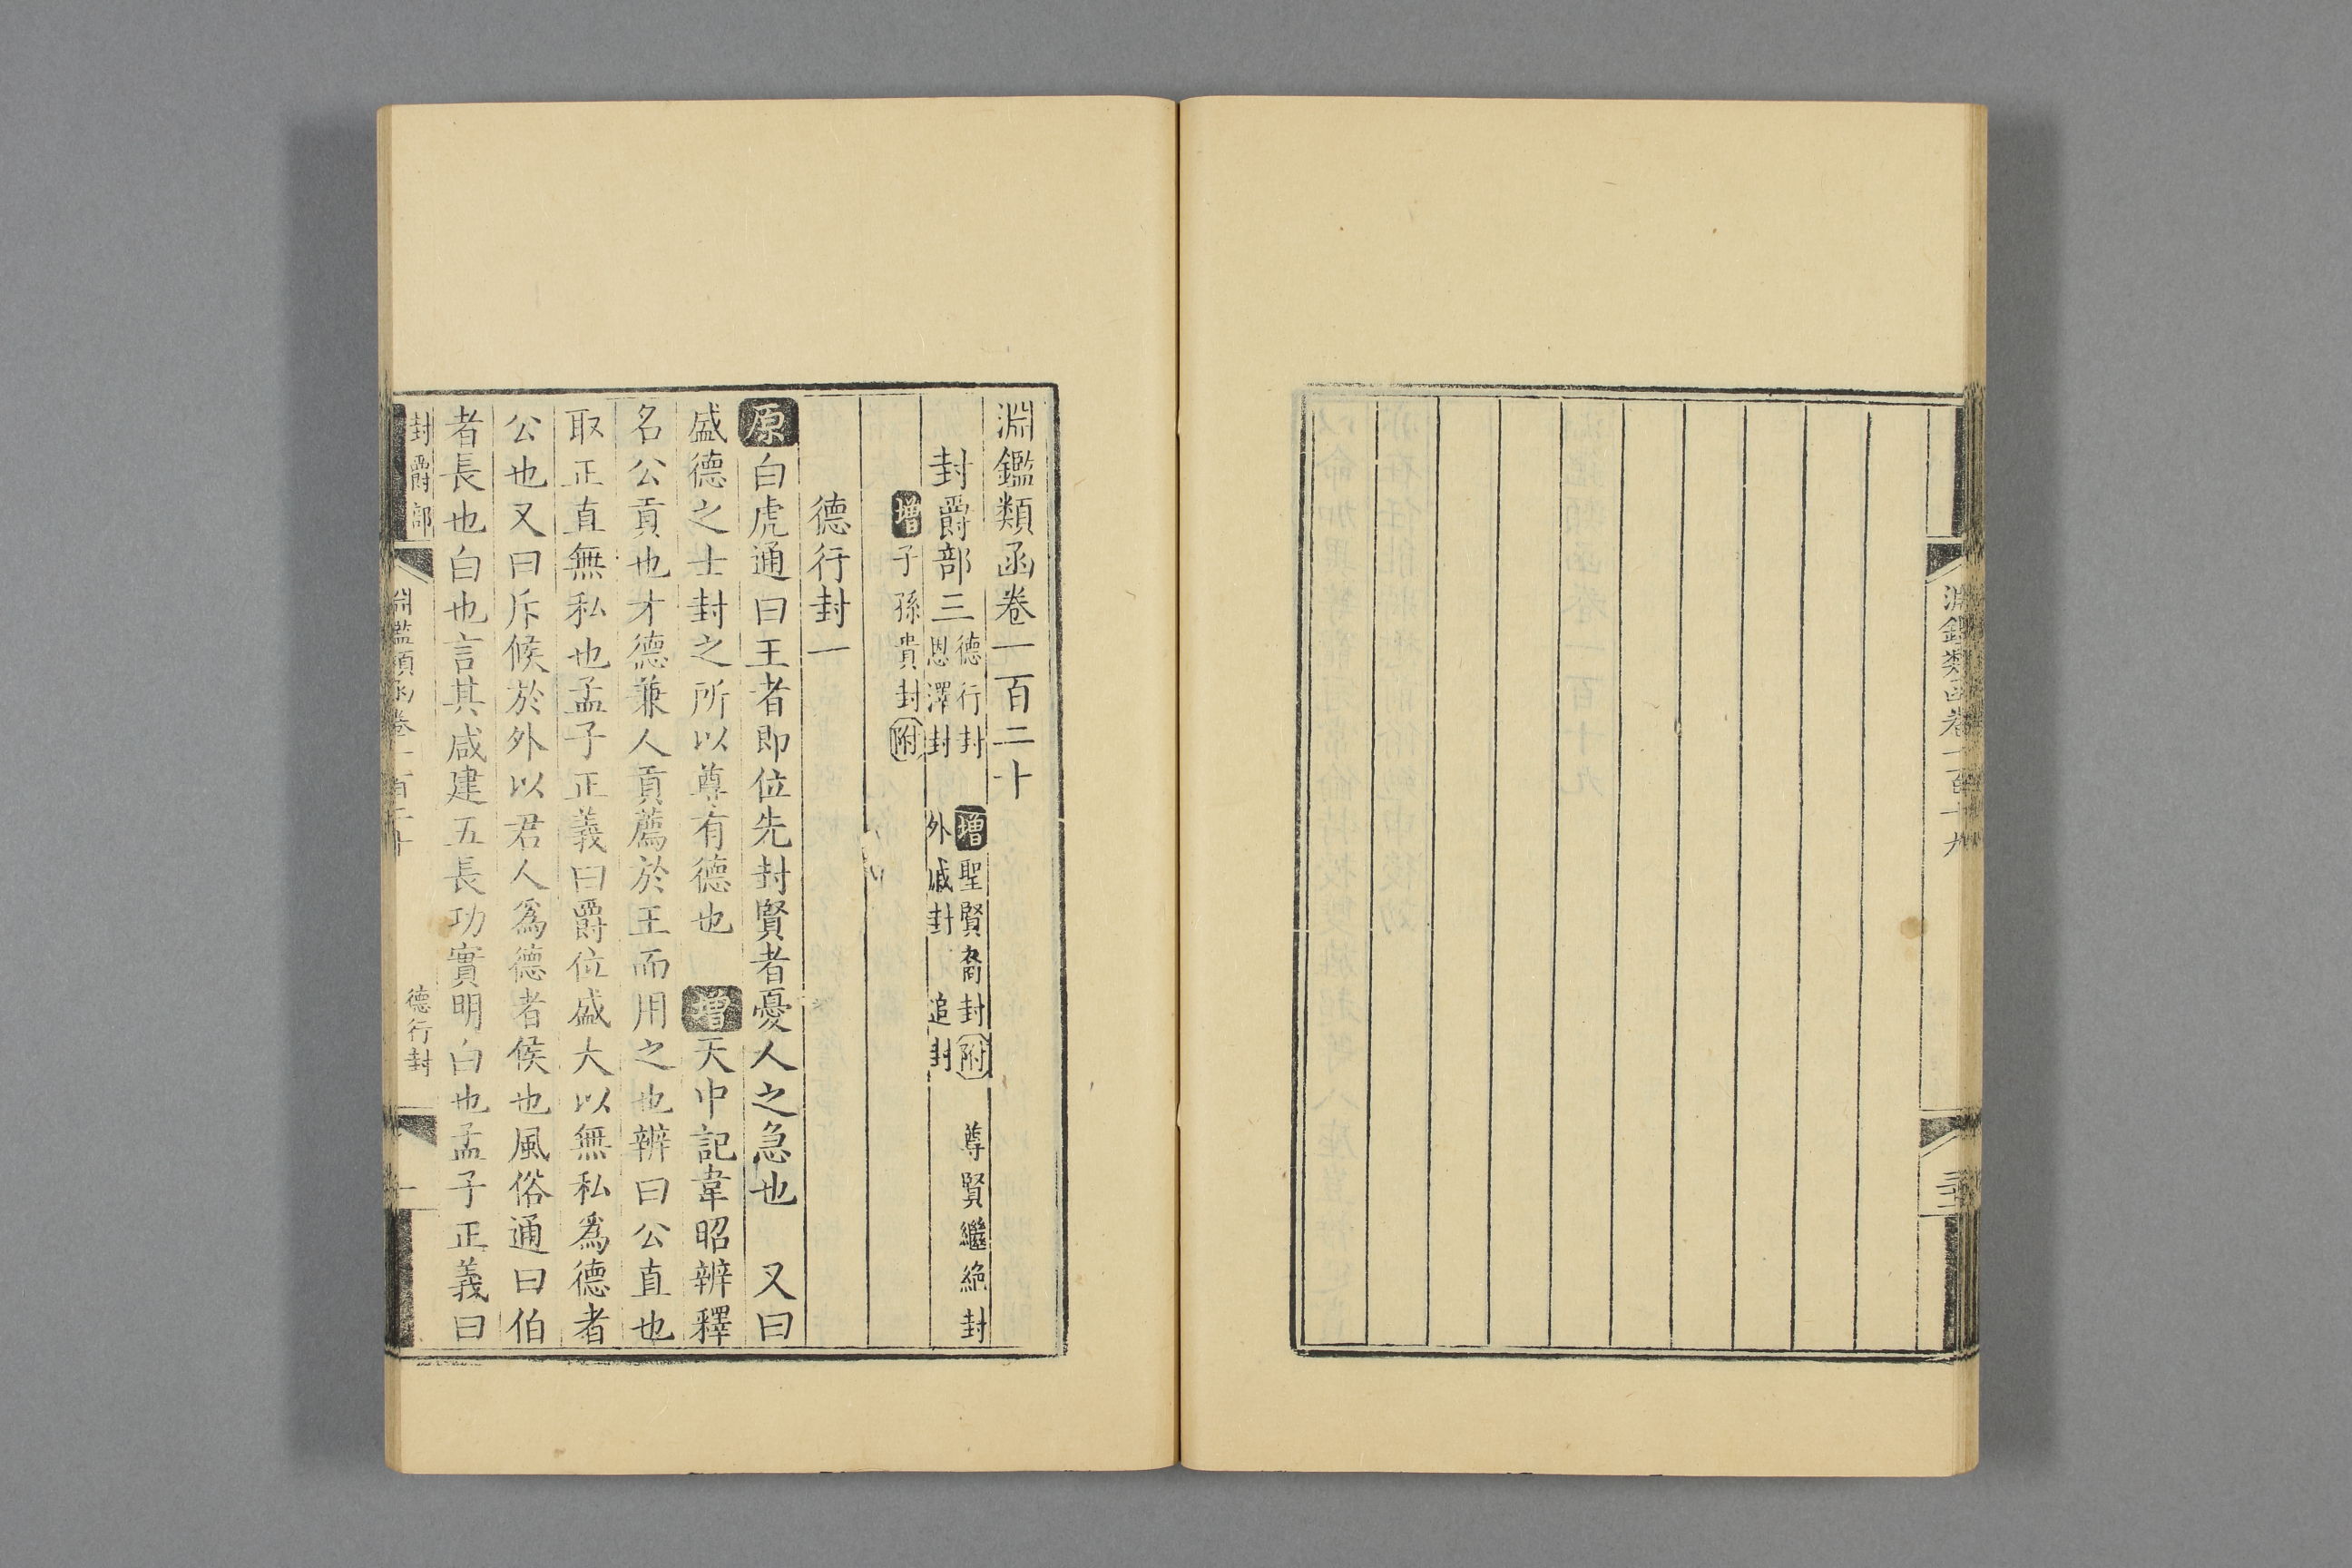 淵鑑類函卷一百十九
淵鑑類函卷一百二十
封爵部三 德行封 增聖賢裔封附 尊賢繼絶封
恩澤封 外戚封 追封
增子孫貴封附
德行封一
原白虎通曰王者即位先封賢者憂人之急也 又曰
盛德之士封之所以尊有德也 增天中記韋昭辨釋
名公貢也才德兼人貢薦於王而用之也辨曰公直也
取正直無私也孟子正義曰爵位盛大以無私爲德者
公也又曰斥候於外以君人爲德者侯也風俗通曰伯
者長也白也言其咸建五長功實明白也孟子正義曰
封爵部 淵鑑類函卷一百二十 德行封 一